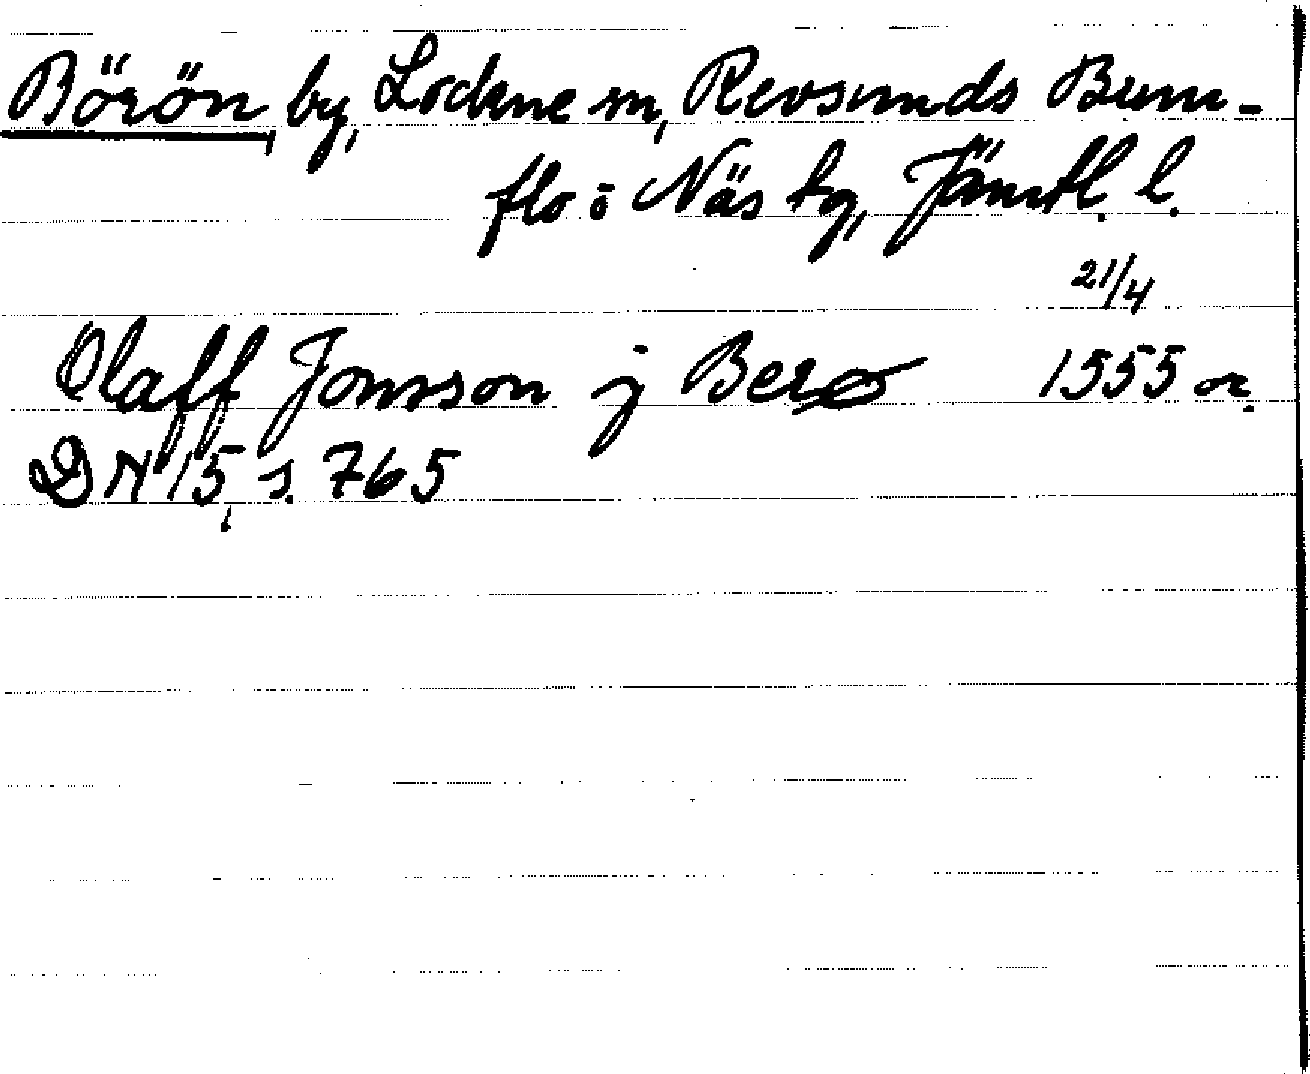 Börön by, Lockne sn, Revsunds Brun-
flo o Näs tg, Jämtl. l.
21/4
Olaff Jonsson j Berø 1555 or.
DN 15, s. 765